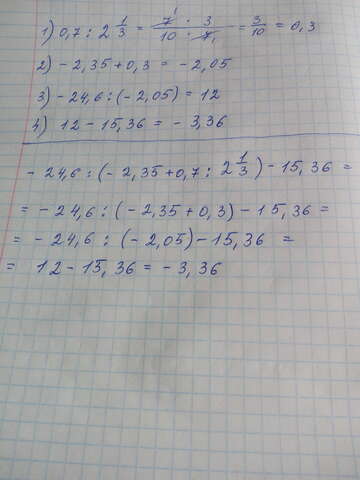 1) 0,7 : 2 1/3 = 7 · 3 / 10 · 7 = 3/10 = 0,3
2) - 2,35 + 0,3 = - 2,05
3) - 24,6 : (- 2,05) = 12
4) 12 - 15,36 = - 3,36
- 24,6 : (- 2,35 + 0,7 : 2 1/3) - 15,36 =
= - 24,6 : (- 2,35 + 0,3) - 15,36 =
= - 24,6 : (- 2,05) - 15,36 =
= 12 - 15,36 = - 3,36